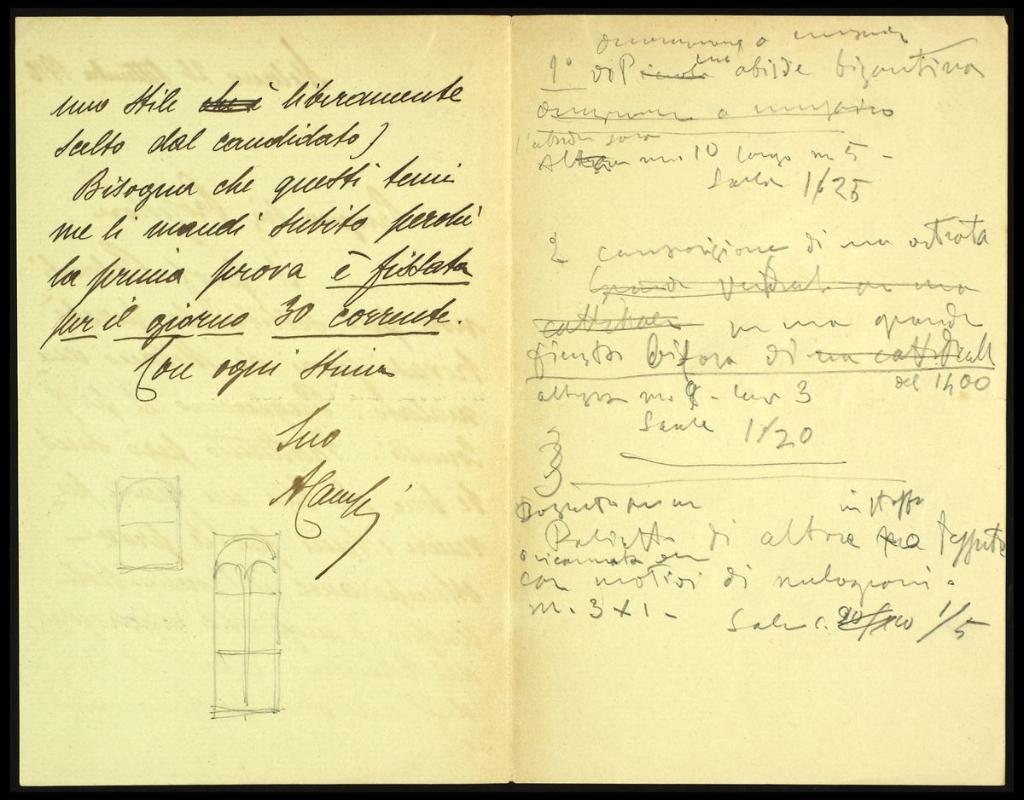 uno stile che è liberamente
scelto dal candidato)
Bisogna che questi temi
me li mandi subito perchè
la prima prova è fissata
per il giorno 30 corrente.
Con ogni stima
Suo
decorazione a musaico
1° di abside bizantina
decorazione a musaico
l'abside sarà
m 10 largo m 5 -
Scala 1/25
2 composizione di una vetrata
Grande vetrata per una
cattedrale per una grande
finestra bifora di una cattedrale
del 1400
altezza m 9 - larg 3
Scala 1/20
3
Progetto per un in stoffa
Paliotto di altare tessuta
o ricamata
con motivi di melograni.
m. 3 x 1 -
1/5